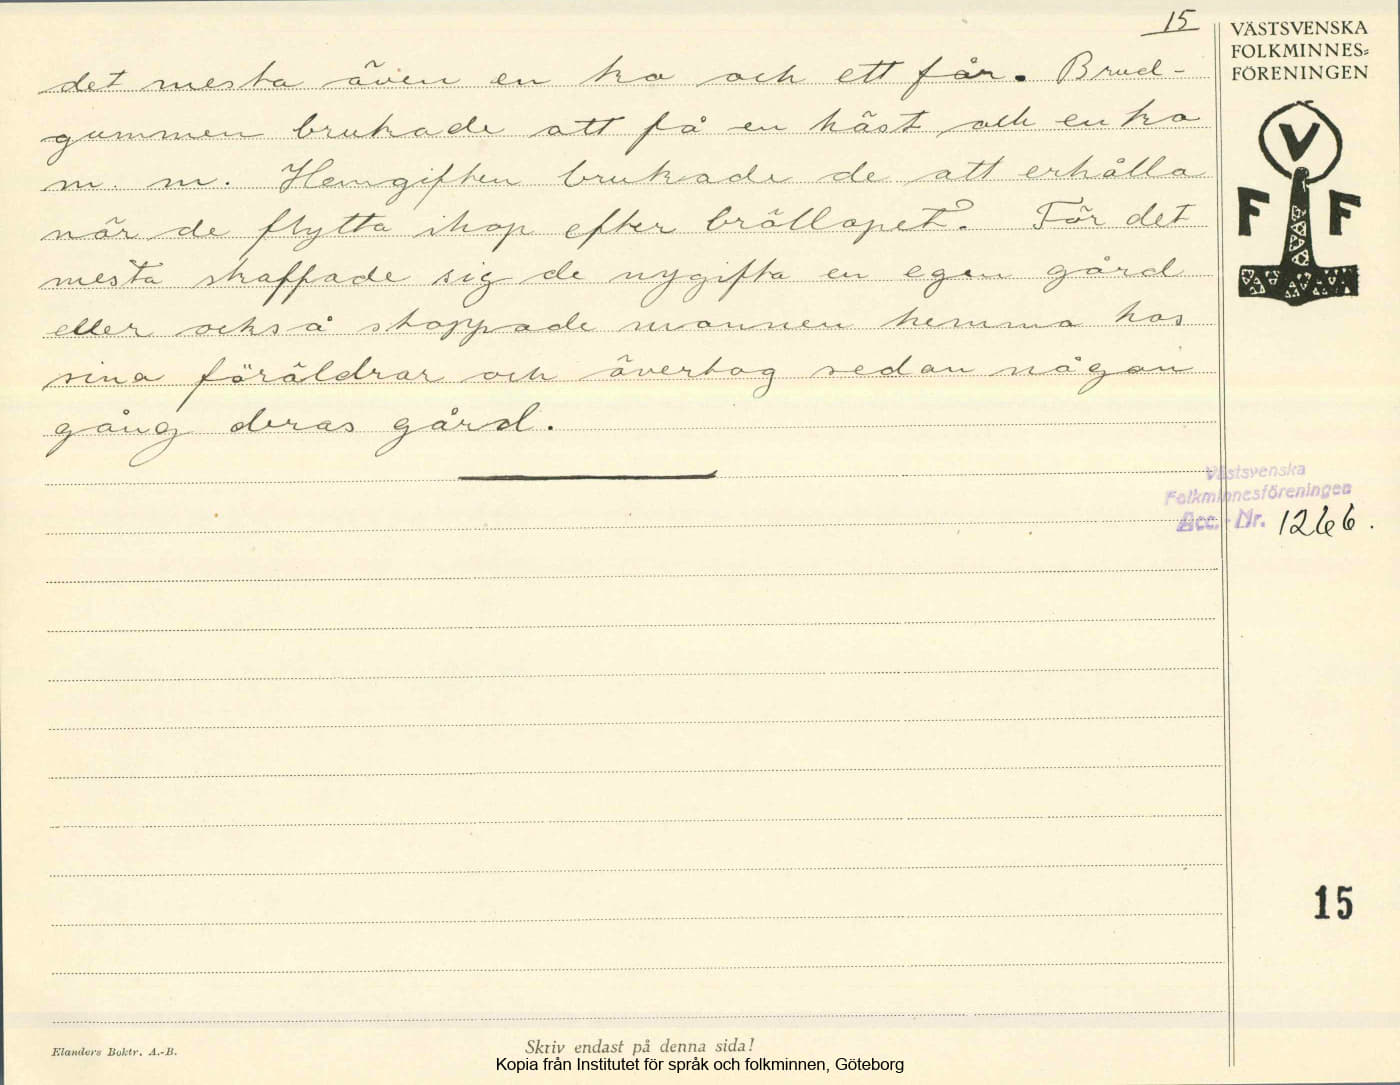 15
det mesta även en ko och ett får. Brud-
gummen brukade att få en häst och en ko
m. m. Hemgiften brukade de att erhålla
när de flytta ihop efter bröllopet. För det
mesta skaffade sig de nygifta en egen gård
eller också stoppade mannen hemma hos
sina föräldrar och övertog sedan någon
gång deras gård.
VÄSTSVENSKA
FOLKMINNES=
FÖRENINGEN
V
F F
Västsvenska
Folkminnesföreningen
Acc.-Nr. 1266.
15
Elanders Boktr. A.-B.
Skriv endast på denna sida!
Kopia från Institutet för språk och folkminnen, Göteborg